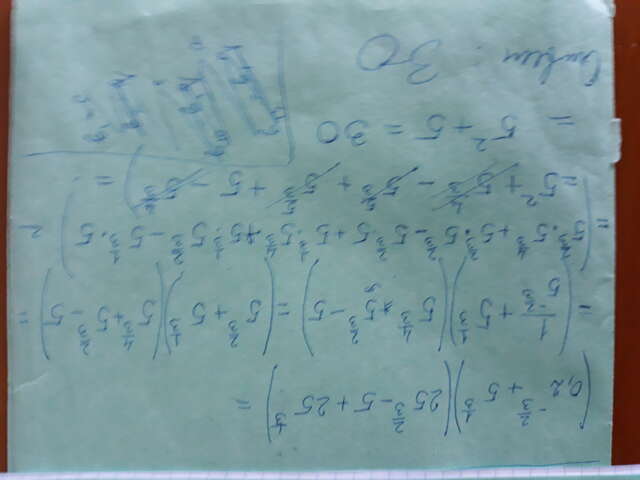 (0,2^{-\frac{2}{3}} + 5^{\frac{1}{3}})(25^{\frac{2}{3}} - 5 + 25^{\frac{1}{3}}) =
= (\frac{1}{5^{-\frac{2}{3}}} + 5^{\frac{1}{3}})(5^{\frac{4}{3}} + 5^{\frac{2}{3}} - 5) = (5^{\frac{2}{3}} + 5^{\frac{1}{3}})(5^{\frac{4}{3}} + 5^{\frac{2}{3}} - 5) =
= 5^{\frac{2}{3}} \cdot 5^{\frac{4}{3}} + 5^{\frac{2}{3}} \cdot 5^{\frac{2}{3}} - 5^{\frac{2}{3}} \cdot 5 + 5^{\frac{1}{3}} \cdot 5^{\frac{4}{3}} + 5^{\frac{1}{3}} \cdot 5^{\frac{2}{3}} - 5^{\frac{1}{3}} \cdot 5 =
= 5^2 + 5^{\frac{4}{3}} - 5^{\frac{5}{3}} + 5^{\frac{5}{3}} + 5 - 5^{\frac{4}{3}} =
= 5^2 + 5 = 30
Ответ: 30